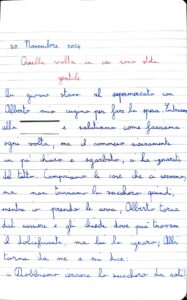 30 Novembre 2024
Quella volta in cui sono stata
gentile
Un giorno stavo al supermercato con
Alberto mio cugino per fare la spesa. Entriamo
alla e salutiamo come facciamo
ogni volta, ma il commesso stranamente
un po' chiuso e sgarbato, ci ha ignorati
del tutto. Compriamo le cose che ci servono,
ma non troviamo lo zucchero quindi,
mentre io prendo le uova, Alberto torna
dal e gli chiede dove può trovare
il dolcificante ma lui lo ignora; Albi
torna da me e mi dice:
« Dobbiamo cercare lo zucchero da soli